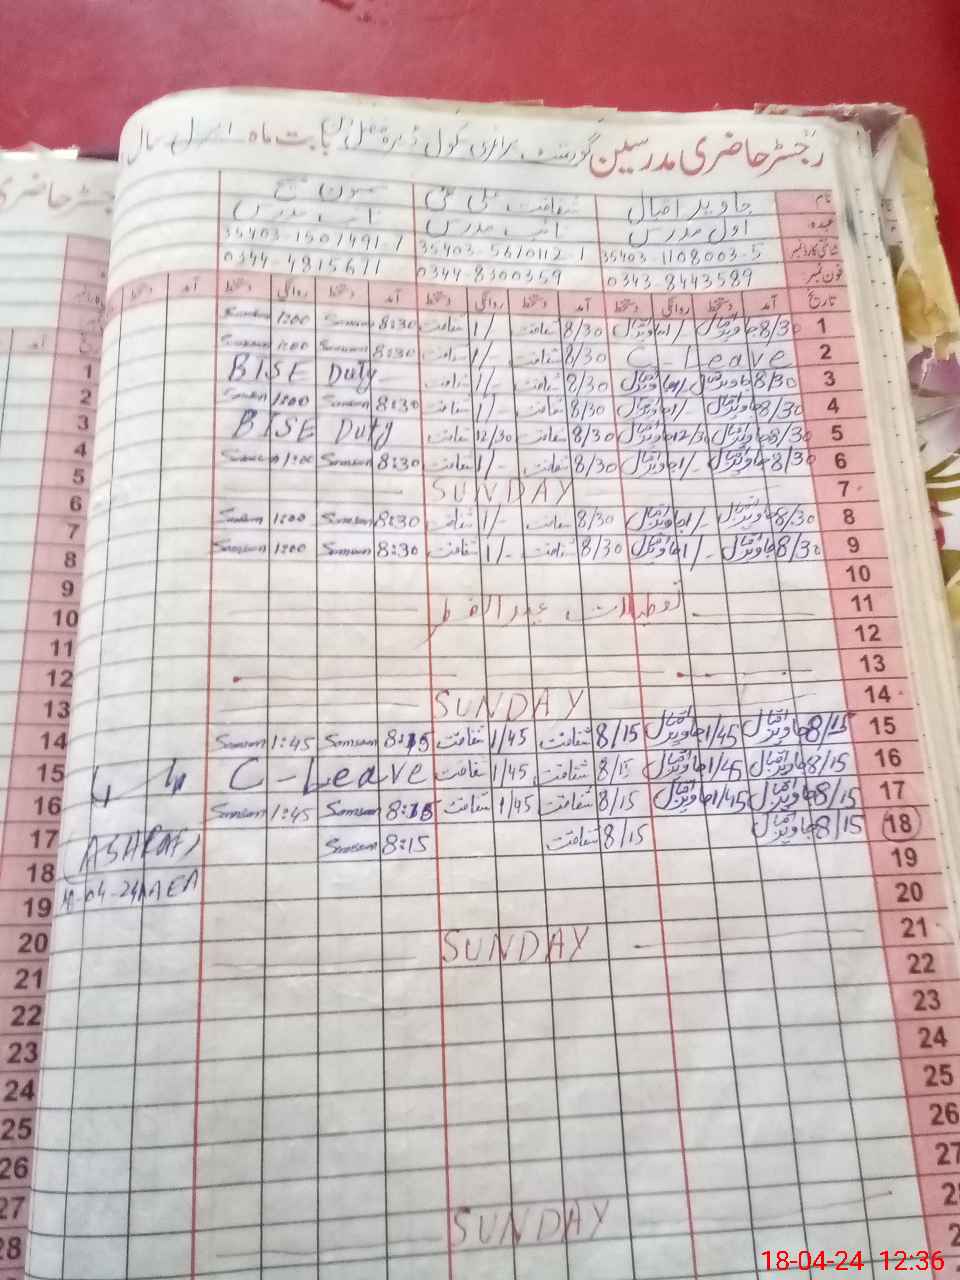 رجسٹر حاضری مدرسین گورنمنٹ پرائمری سکول بابت ماہ اپریل سال
نام جاوید اقبال شفاقت علی
عہدہ اول مدرس نائب مدرس نائب مدرس
شناختی کارڈ نمبر 35403-1108003-5 35403-5610112-1 35403-1507491-1
فون نمبر 0343-8443589 0344-8300359 0344-4815611
تاریخ آمد دستخط روانگی دستخط آمد دستخط روانگی دستخط آمد دستخط روانگی دستخط آمد دستخط
1 8/30 جاوید اقبال 1/- جاوید اقبال 8/30 شفاقت 1/- شفاقت 8:30 Samson 1:00 Samson
2 C-Leave 8/30 شفاقت 1/- شفاقت 8:30 Samson 1:00 Samson
3 8/30 جاوید اقبال 1/- جاوید اقبال 8/30 شفاقت 1/- شفاقت BISE Duty
4 8/30 جاوید اقبال 1/- جاوید اقبال 8/30 شفاقت 1/- شفاقت 8:30 Samson 1:00 Samson
5 8/30 جاوید اقبال 12/30 جاوید اقبال 8/30 شفاقت 12/30 شفاقت BISE Duty
6 8/30 جاوید اقبال 1/- جاوید اقبال 8/30 شفاقت 1/- شفاقت 8:30 Samson 1:00 Samson
7 SUNDAY
8 8/30 جاوید اقبال 1/- جاوید اقبال 8/30 شفاقت 1/- شفاقت 8:30 Samson 1:00 Samson
9 8/30 جاوید اقبال 1/- جاوید اقبال 8/30 شفاقت 1/- شفاقت 8:30 Samson 1:00 Samson
10
11 تعطیلات عیدالفطر
12
13
14 SUNDAY
15 8/15 جاوید اقبال 1/45 جاوید اقبال 8/15 شفاقت 1/45 شفاقت 8:15 Samson 1:45 Samson
16 8/15 جاوید اقبال 1/45 جاوید اقبال 8/15 شفاقت 1/45 شفاقت C-Leave
17 8/15 جاوید اقبال 1/45 جاوید اقبال 8/15 شفاقت 1/45 شفاقت 8:15 Samson 1:45 Samson
18 8/15 جاوید اقبال 8/15 شفاقت 8:15 Samson
ASHRAF
19
AEA
20
21 SUNDAY
22
23
24
25
26
27
SUNDAY
رجسٹر
آمد
1
2
3
4
5
6
7
8
9
10
11
12
13
14
15
16
17
18
19
20
21
22
23
24
25
26
27
28
18-04-24 12:36